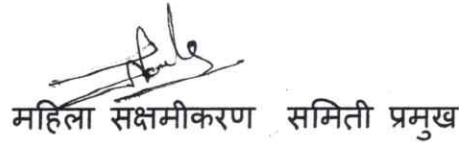 महिला सक्षमीकरण समिती प्रमुख